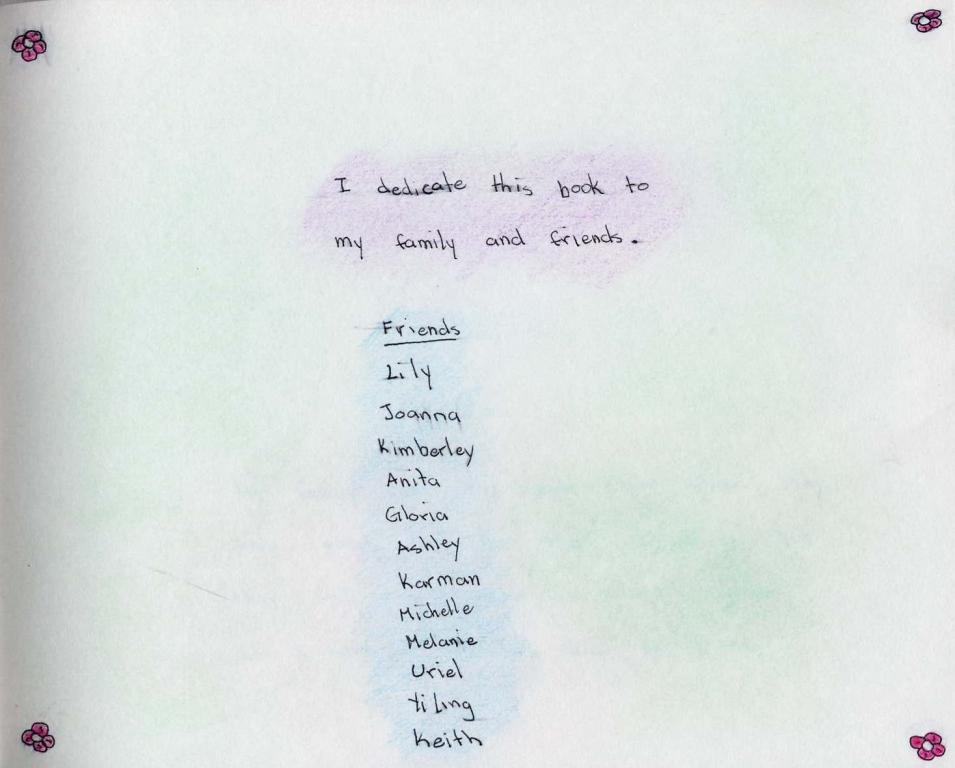 I dedicate this book to
my family and friends.
Friends
Lily
Joanna
Kimberley
Anita
Gloria
Ashley
Karman
Michelle
Melanie
Uriel
Yi Ling
Keith